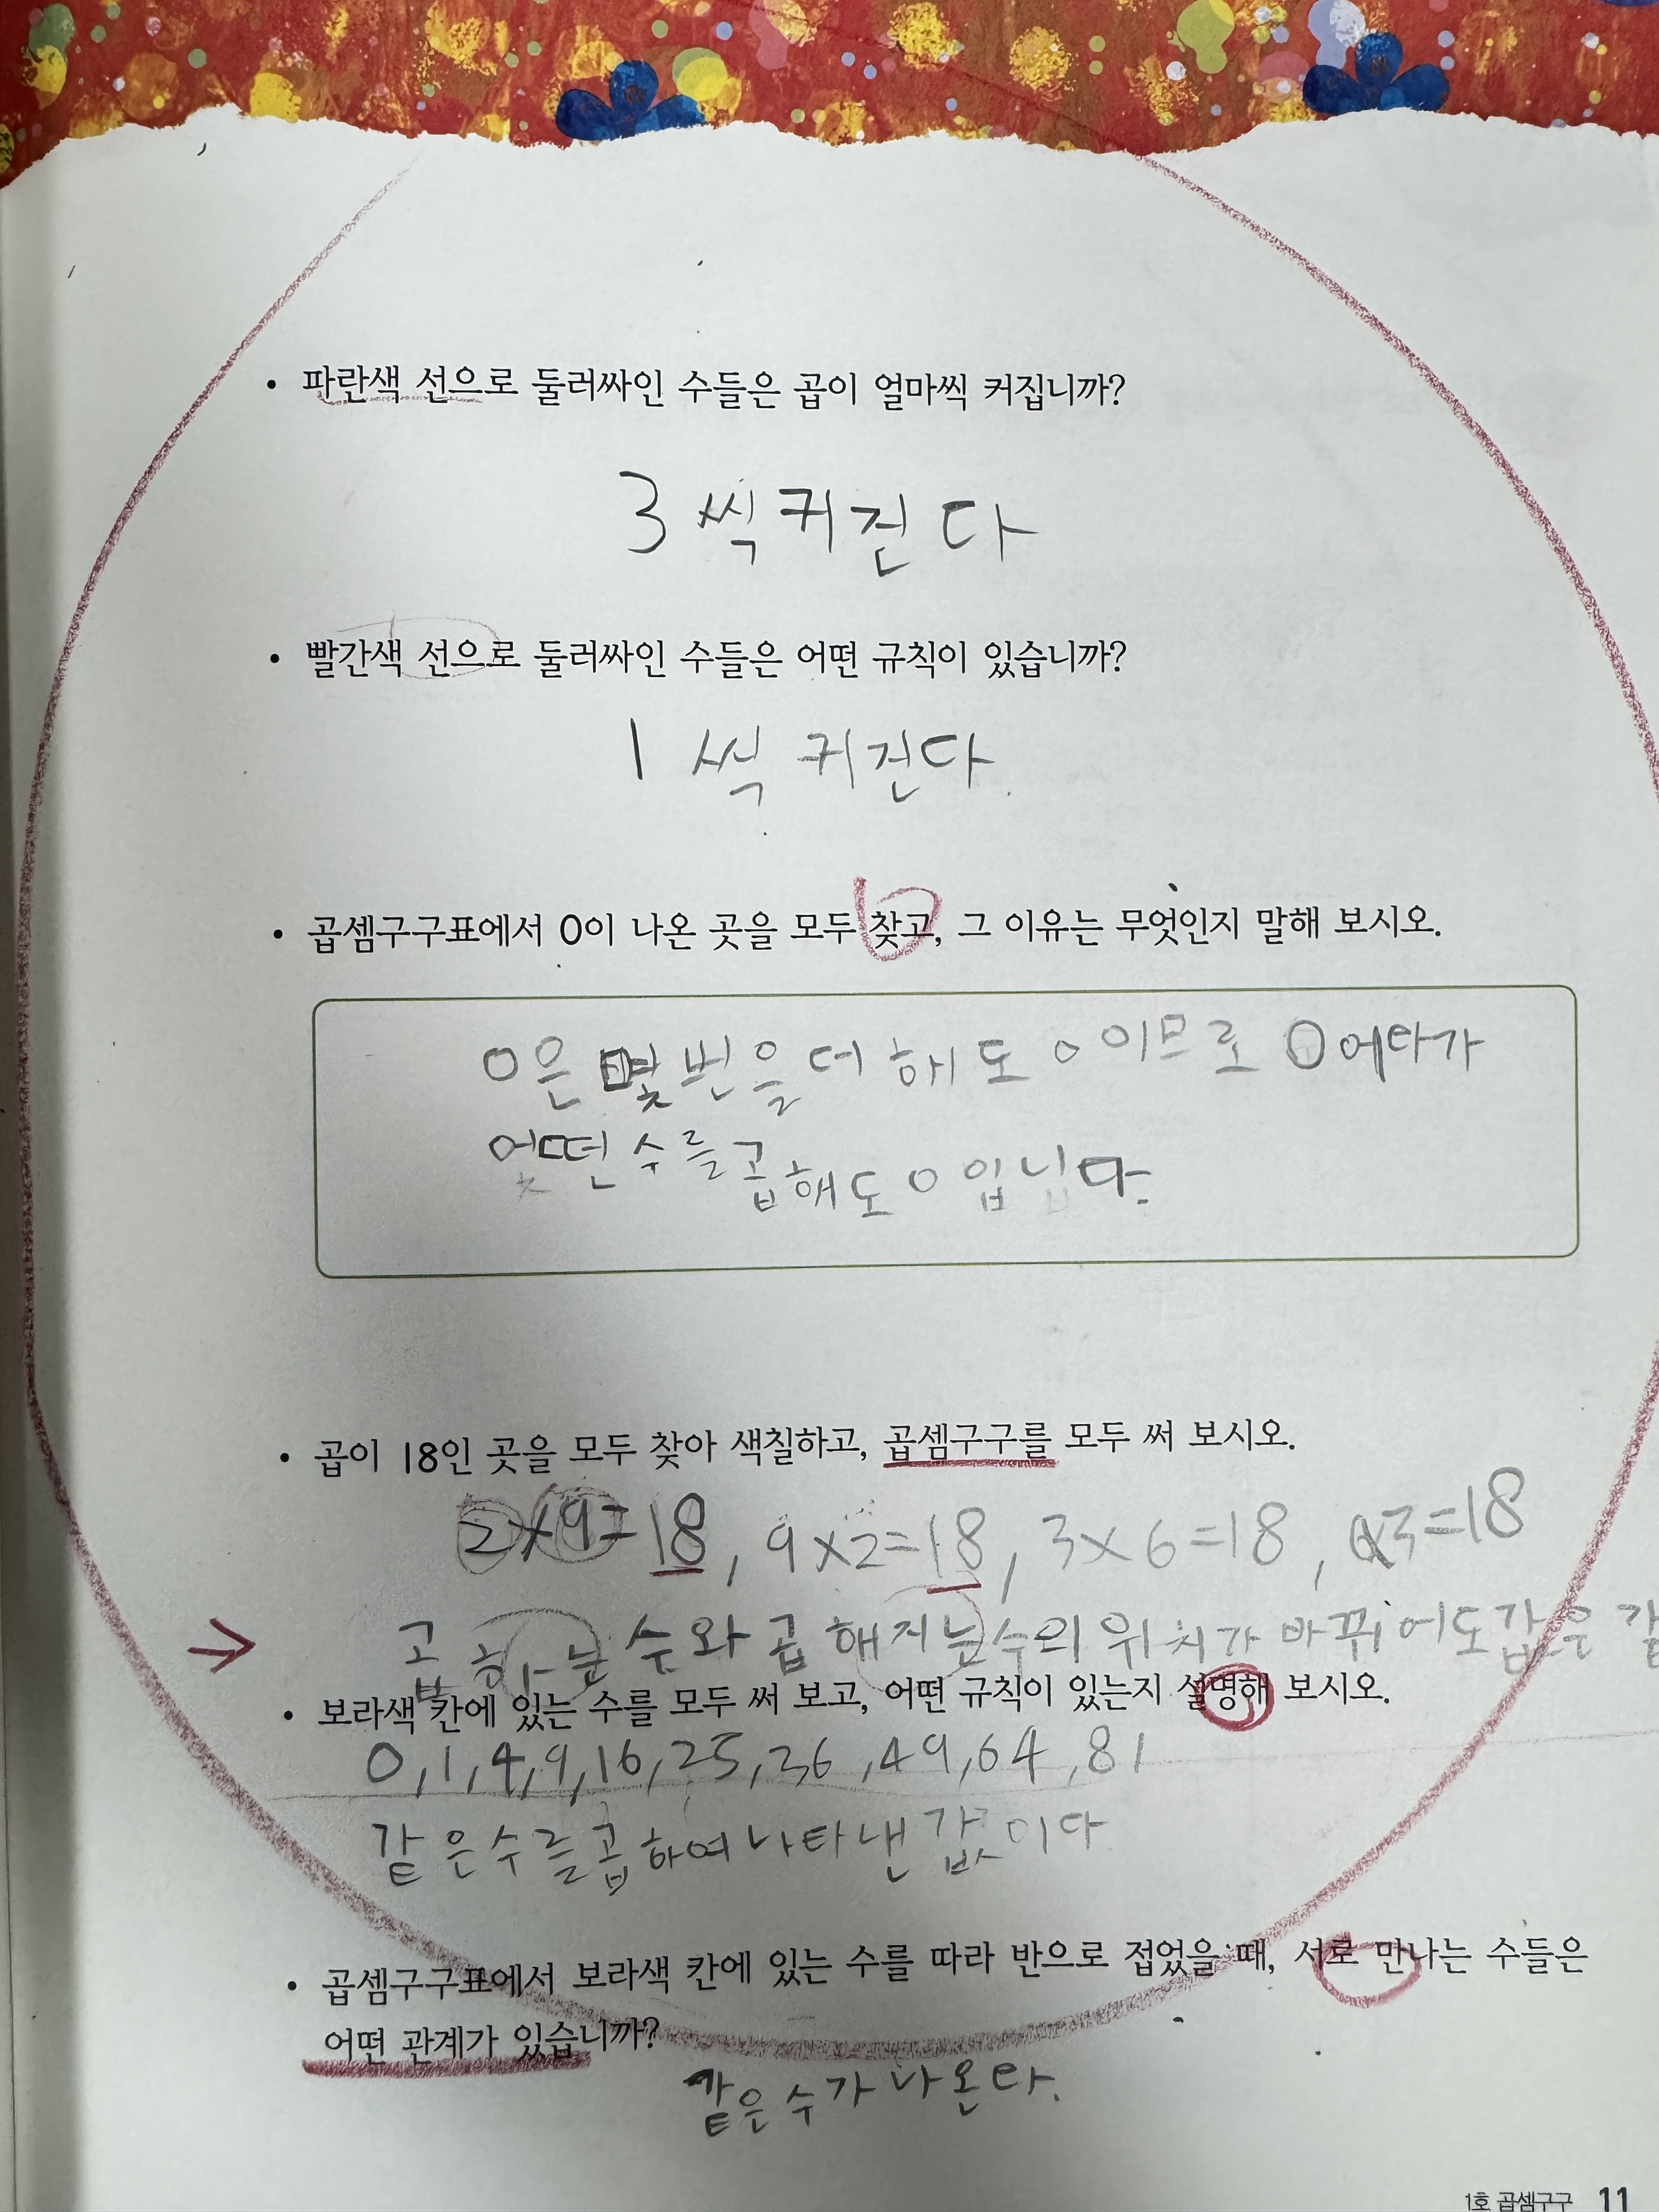 • 파란색 선으로 둘러싸인 수들은 곱이 얼마씩 커집니까?
3씩커진다
• 빨간색 선으로 둘러싸인 수들은 어떤 규칙이 있습니까?
1씩 커진다.
• 곱셈구구표에서 0이 나온 곳을 모두 찾고, 그 이유는 무엇인지 말해 보시오.
0은 몇번을더해도 0이므로 0에다가
어떤수를곱해도0입니다.
• 곱이 18인 곳을 모두 찾아 색칠하고, 곱셈구구를 모두 써 보시오.
2×9=18, 9×2=18, 3×6=18, 6×3=18
→ 곱하는 수와 곱해지는수의 위치가 바뀌어도값은
• 보라색 칸에 있는 수를 모두 써 보고, 어떤 규칙이 있는지 설명해 보시오.
0,1,4,9,16,25,36,49,64,81
같은수를곱하여나타낸값이다
• 곱셈구구표에서 보라색 칸에 있는 수를 따라 반으로 접었을 때, 서로 만나는 수들은
어떤 관계가 있습니까?
같은수가나온다.
1호 곱셈구구 11